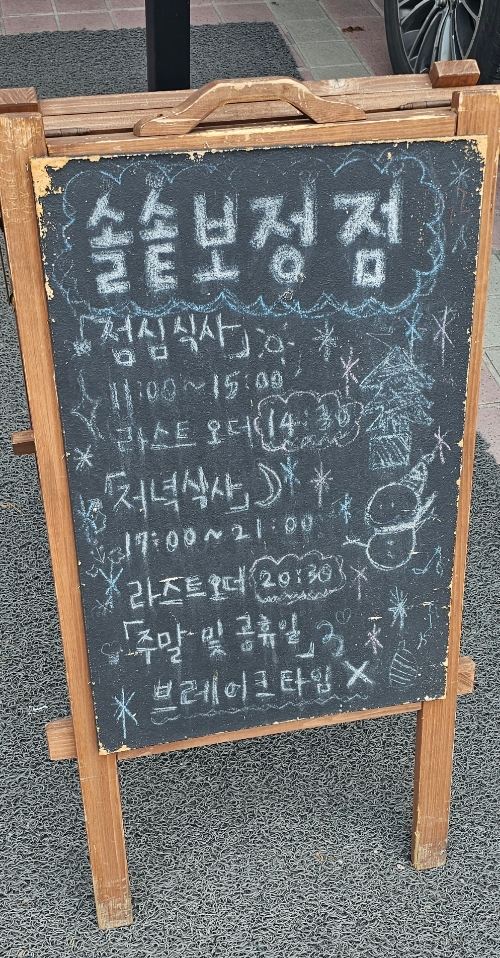 솔솥보정점
「점심식사」
11:00~15:00
라스트오더 14:30
「저녁식사」
17:00~21:00
라스트오더 20:30
「주말 및 공휴일」
브레이크타임 X